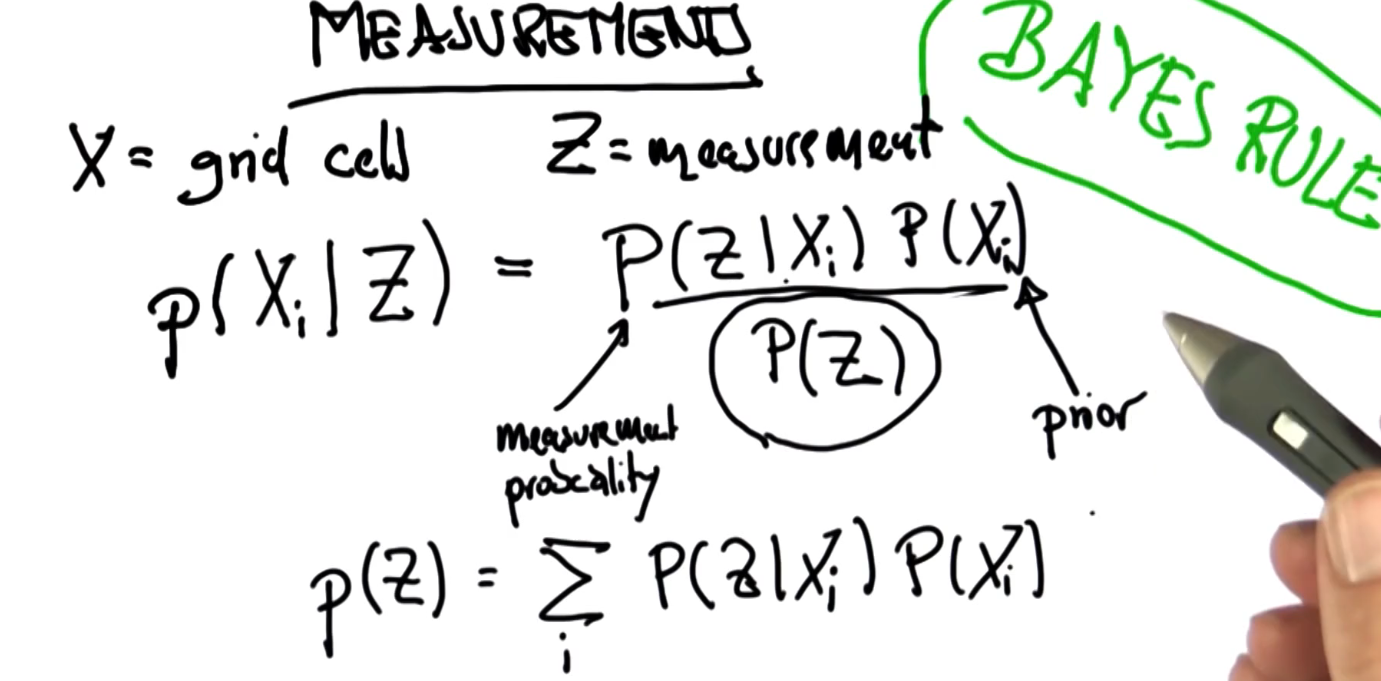 MEASUREMENT
BAYES RULE
X = grid cell    Z = measurement
p(Xi | Z) = P(Z | Xi) P(Xi)
P(Z)
measurement
probability
prior
p(Z) = ∑ P(Z | Xi) P(Xi)
i